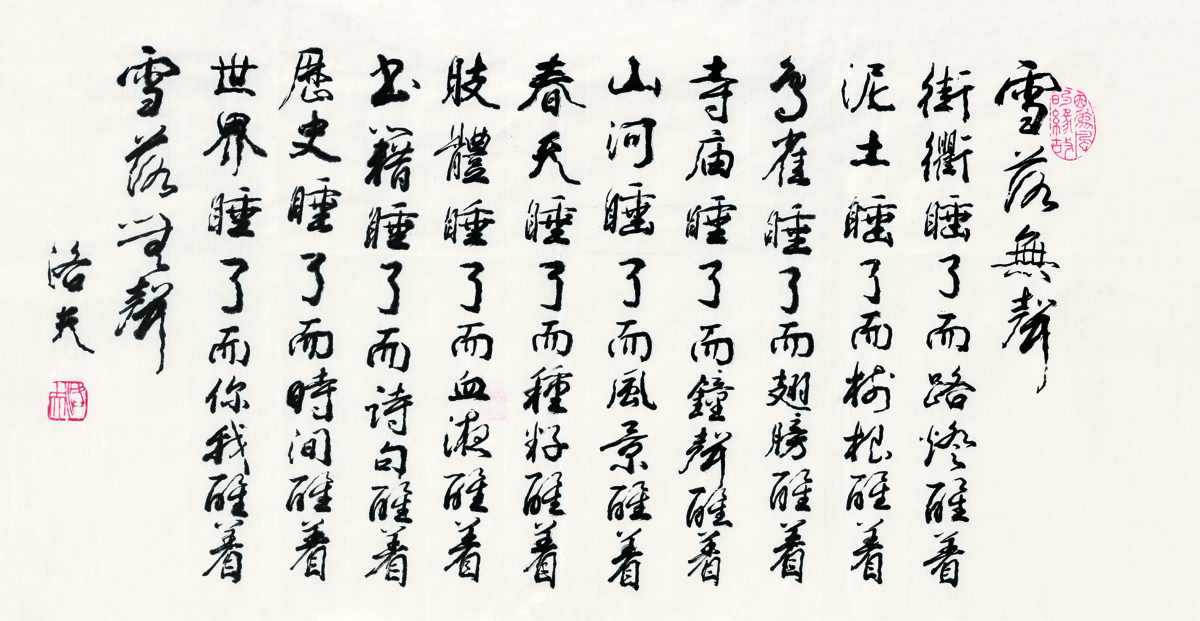 因為風
的緣故
雪落無聲
街衢睡了而路燈醒着
泥土睡了而树根醒着
鸟雀睡了而翅膀醒着
寺庙睡了而鐘聲醒着
山河睡了而風景醒着
春天睡了而種籽醒着
肢體睡了而血液醒着
书籍睡了而詩句醒着
歷史睡了而時间醒着
世界睡了而你我醒着
雪落無聲
洛夫
洛夫